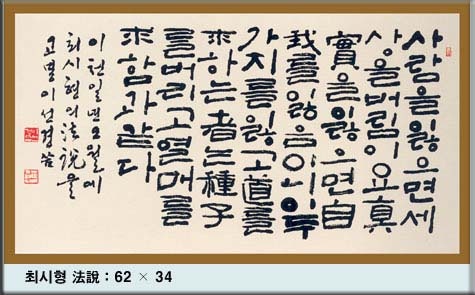 사람을잃으면세
상을버림이요眞
實을잃으면自
我를잃음이니두
가지를잃고道를
求하는者는種子
를버리고열매를
求함과같다
이천일년오월에
최시형의法說을
이선경
최시형 法說 : 62 × 34